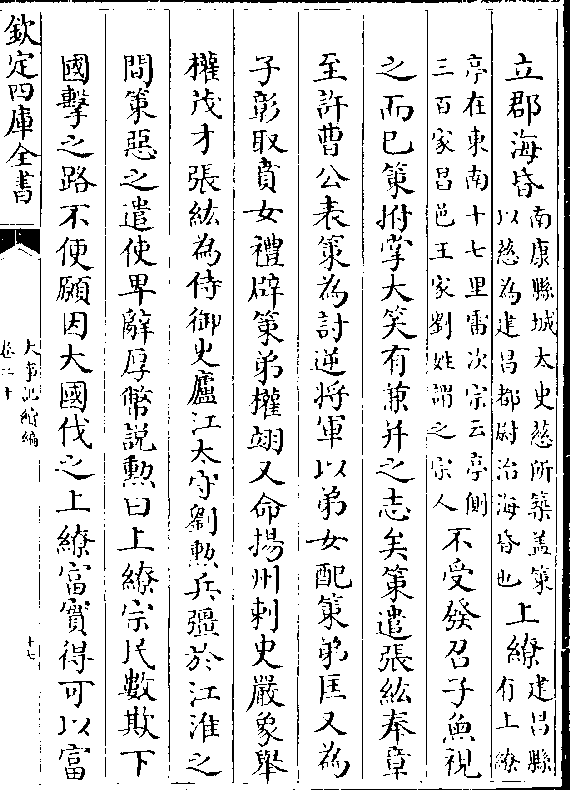 立郡海昏南康縣城太史慈所築蓋策以慈為建昌都尉治海昏也上繚建昌縣有上繚
亭在東南十七里雷次宗云亭側三百家昌邑王家劉姓謂之宗人不受發召子魚視
之而已策拊掌大笑有兼并之志矣策遣張紘奉章
至許曹公表策為討逆將軍以弟女配策弟匡又為
子彰取賁女禮辟策弟權翊又命揚州刺史嚴象舉
權茂才張紘為侍御史廬江太守劉勲兵彊於江淮之
間策惡之遣使卑辭厚幣説勲曰上繚宗民數欺下
國擊之路不便願因大國伐之上繚富實得可以富
欽定四庫全書
大事記續編
卷二十
十七